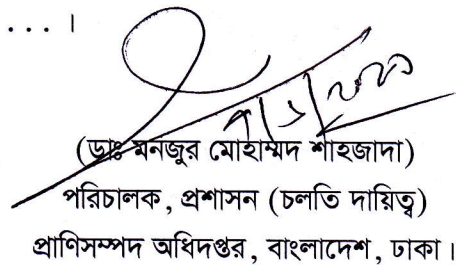 ... ।
(ডাঃ মনজুর মোহাম্মদ শাহজাদা)
পরিচালক, প্রশাসন (চলতি দায়িত্ব)
প্রাণিসম্পদ অধিদপ্তর, বাংলাদেশ, ঢাকা।